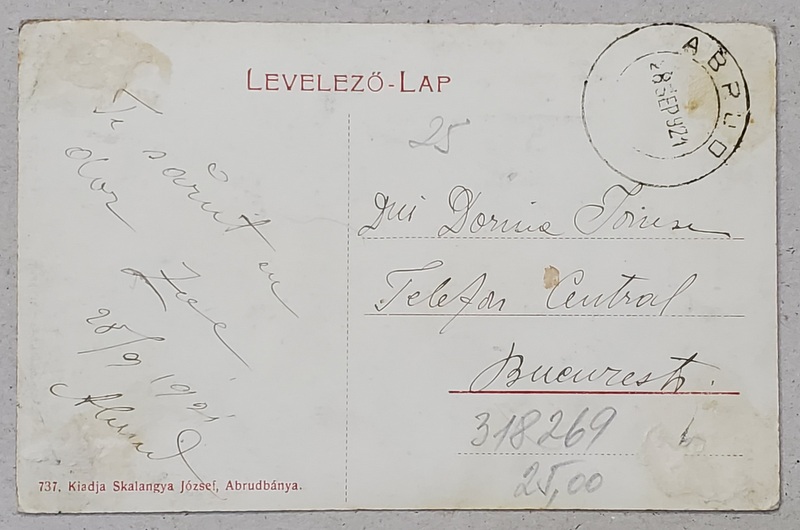 LEVELEZŐ-LAP
ABRUD
28 SEP 921
25
Te sărut cu
dor
28/9 1921
Dnei Dorina
Telefon Central
Bucuresti.
318269
25,00
737. Kiadja Skalangya József, Abrudbánya.